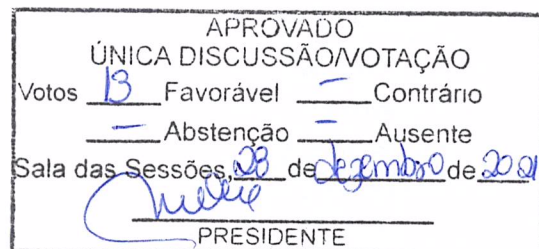 APROVADO
ÚNICA DISCUSSÃO/VOTAÇÃO
Votos 13 Favorável - Contrário
- Abstenção - Ausente
Sala das Sessões, 28 de dezembro de 2021
PRESIDENTE